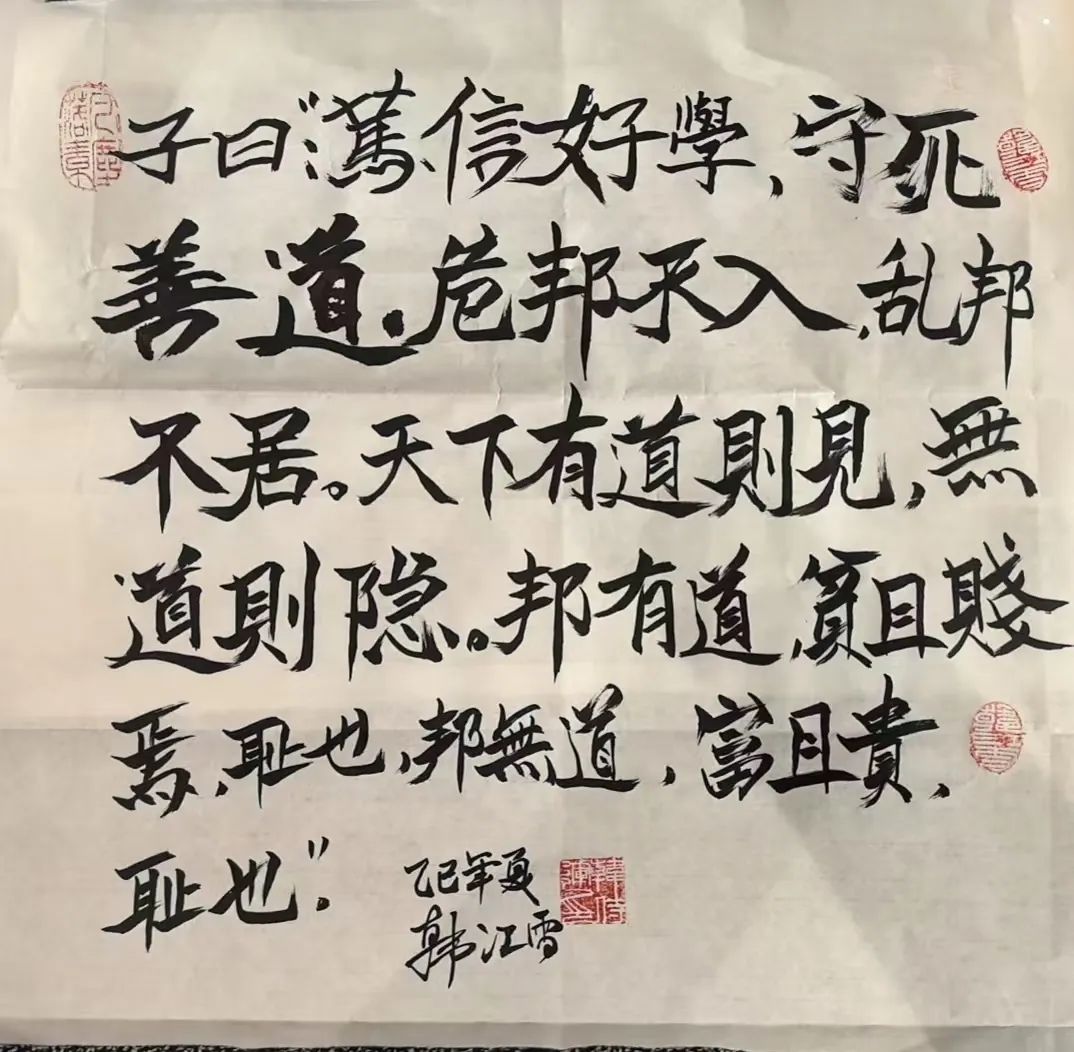 子曰:“篤信好學,守死
善道。危邦不入,乱邦
不居。天下有道則見,無
道則隐。邦有道,貧且賤
焉,耻也,邦無道,富且貴,
耻也”.
乙巳年夏
韩江雪